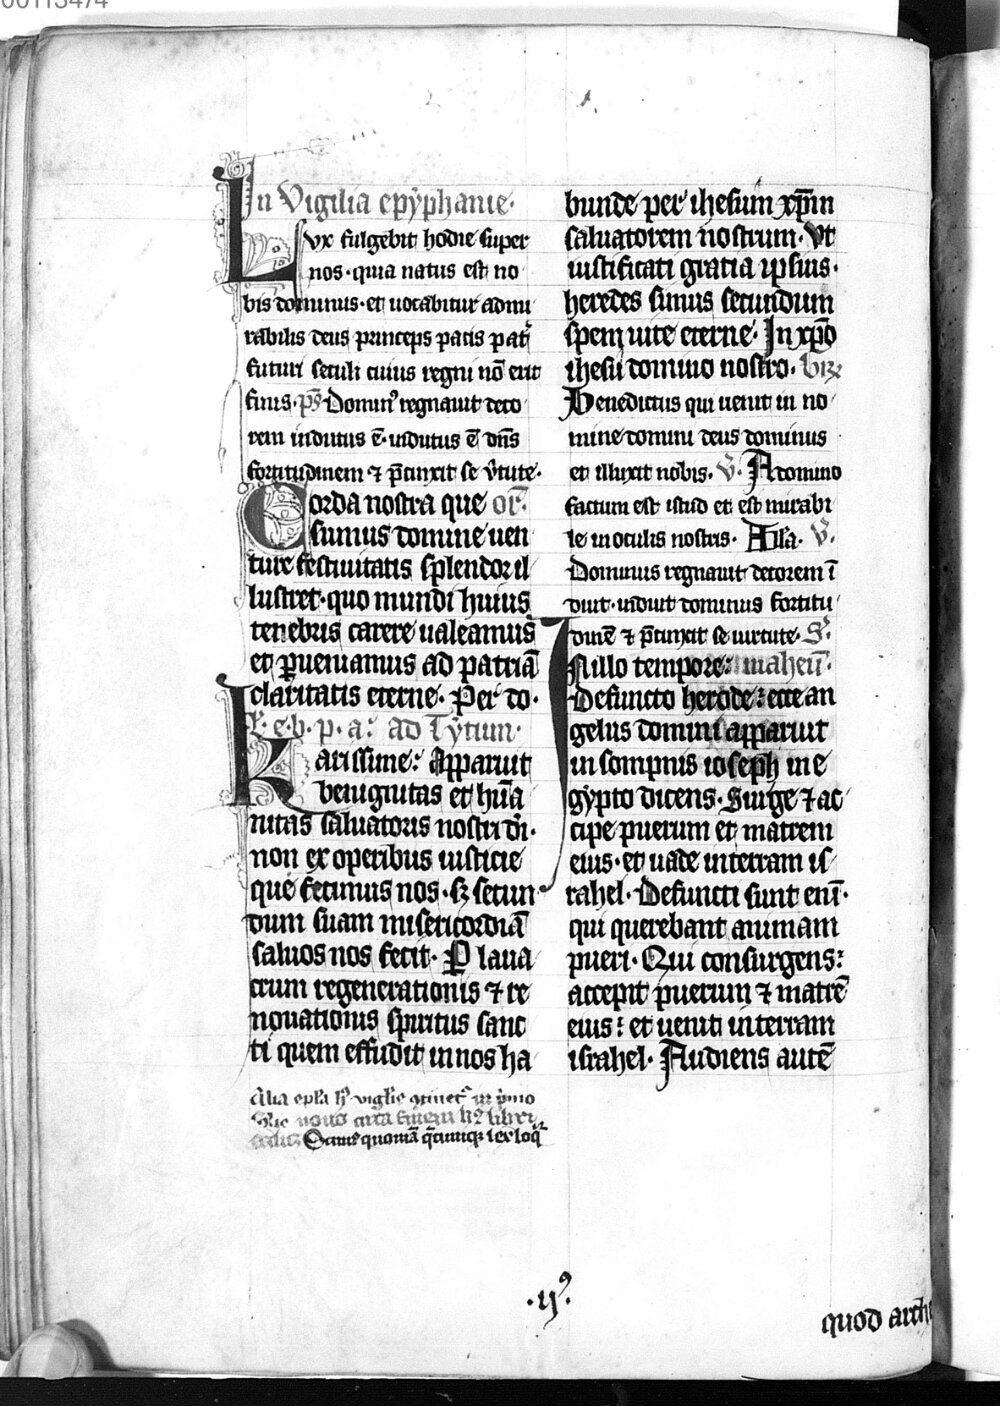 00113474
In Vigilia epyphanie.
Lvx fulgebit hodie super
nos. quia natus est no
bis dominus. et uocabitur admi
rabilis deus princeps pacis pat̉
futuri seculi cuius regni nō erit
finis. ps̄ Domin⁹ regnauit deco
rem indutus ē. indutus ē dn̄s
fortitudinem ⁊ p̄cinxit se v̉tute.
Corda nostra que or̄.
sumus domine uen
ture festiuitatis splendor il
lustret. quo mundi huius
tenebris carere ualeamus
et ꝑueniamus ad patriā
claritatis eterne. Per do.
l. e. b. p. a. ad Tytum.
Karissime: Apparuit
benignitas et hūa
nitas saluatoris nostri di.
non ex operibus iusticie
que fecimus nos. sꝫ secun
dum suam misericordiā
saluos nos fecit. P laua
crum regenerationis ⁊ re
nouationis spiritus sanc
ti quem effudit in nos ha
Alia epl̄a hꝰ vigilie ꝯtinet̉ in p̉mo
circa finem libri
Scimꝰ quoniā q̄cumqꝫ lex loq̄
bunde per ihesum xp̄m
saluatorem nostrum. Vt
iustificati gratia ipsius.
heredes simus secundum
spem uite eterne. In xp̄o
ihesu domino nostro.
Benedictus qui uenit in no
mine domini deus dominus
et illuxit nobis. V. A domino
factum est istud et est mirabi
le in oculis nostris. All̄a. V.
Dominus regnauit decorem ī
duit. induit dominus fortitu
dinē ⁊ p̄cinxit se uirtute. S.
In illo tempore: matheū.
Defuncto herode: ecce an
gelus domini apparuit
in sompnis ioseph in e
gypto dicens. Surge ⁊ ac
cipe puerum et matrem
eius. et uade in terram is
rahel. Defuncti sunt enī.
qui querebant animam
pueri. Qui consurgens:
accepit puerum ⁊ matrē
eius: et uenit in terram
israhel. Audiens autē
.ij⁹.
quod arche